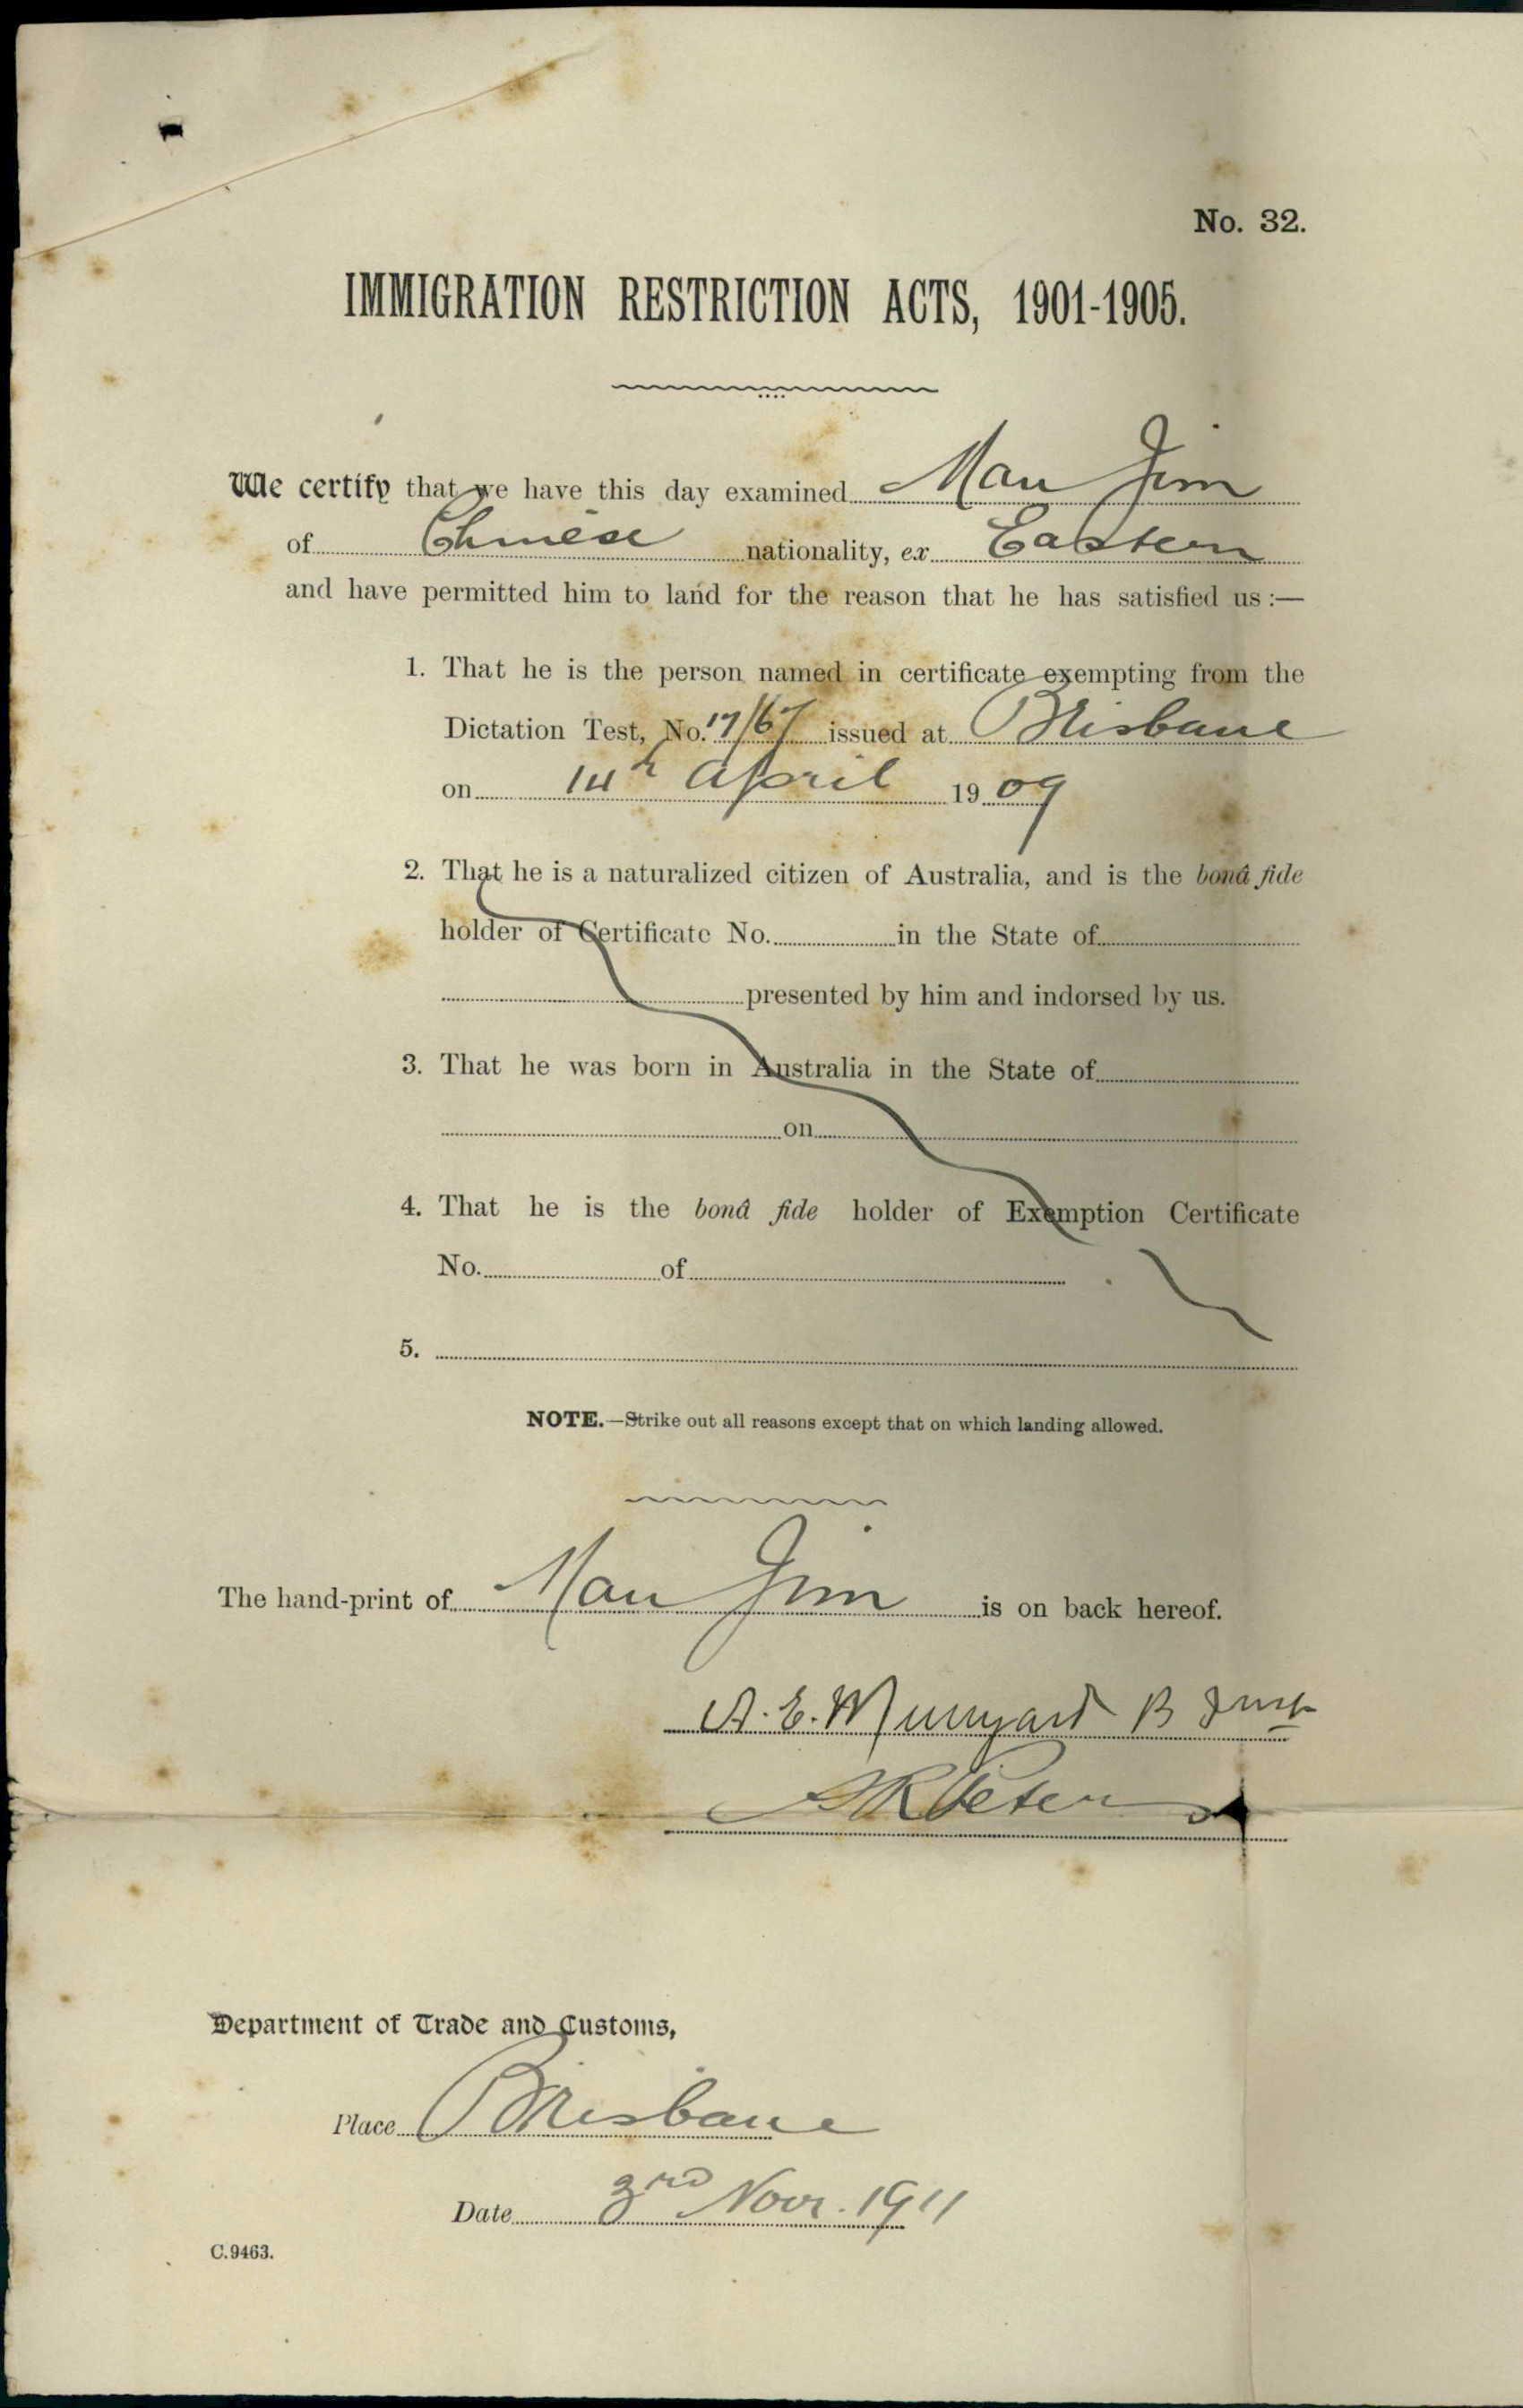 No. 32.
IMMIGRATION RESTRICTION ACTS, 1901-1905.
We certify that we have this day examined Man Jim
of Chinese nationality, ex Eastern
and have permitted him to land for the reason that he has satisfied us :—
1. That he is the person named in certificate exempting from the
Dictation Test, No. 17/67 issued at Brisbane
on 14th April 1909
2. That he is a naturalized citizen of Australia, and is the bonâ fide
holder of Certificate No. in the State of
presented by him and indorsed by us.
3. That he was born in Australia in the State of
on
4. That he is the bonâ fide holder of Exemption Certificate
No. of
5.
NOTE.—Strike out all reasons except that on which landing allowed.
The hand-print of Man Jim is on back hereof.
A. E. Munyard B
Peters
Department of Trade and Customs,
Place Brisbane
Date 3rd Novr. 1911
C.9463.